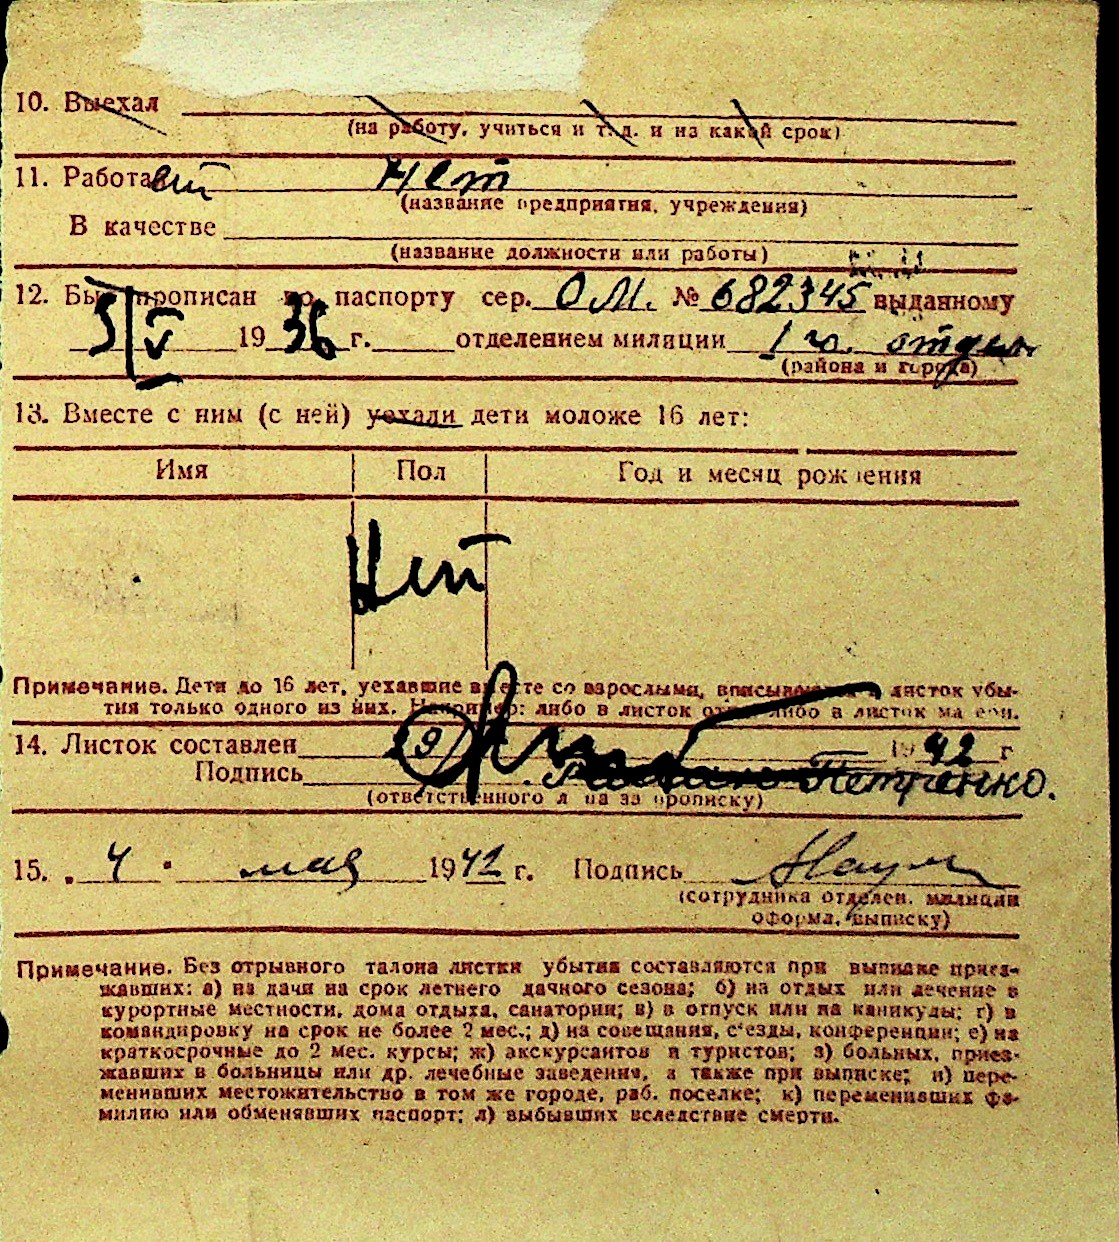 10. Выехал
(на работу, учиться и т. д. и на какой срок)
11. Работает Нет
(название предприятия, учреждения)
В качестве
(название должности или работы)
12. Был прописан по паспорту сер. О М. № 682345 выданному
5/V 1936 г. отделением милиции 1 го. отдел
(района и города)
13. Вместе с ним (с ней) уехали дети моложе 16 лет:
Имя Пол Год и месяц рождения
Нет
Примечание. Дети до 16 лет, уехавшие вместе со взрослыми, вписываются в листок убы-
тия только одного из них. Например: либо в листок отца, либо в листок матери.
14. Листок составлен 1942 г
Подпись Петренко.
(ответственного лица за прописку)
15. 4 мая 1942 г. Подпись
(сотрудника отделен. милиции
оформл. выписку)
Примечание. Без отрывного талона листки убытия составляются при выписке приез-
жавших: а) на дачи на срок летнего дачного сезона; б) на отдых или лечение в
курортные местности, дома отдыха, санатории; в) в отпуск или на каникулы; г) в
командировку на срок не более 2 мес.; д) на совещания, с'езды, конференции; е) на
краткосрочные до 2 мес. курсы; ж) экскурсантов и туристов; з) больных, приез-
жавших в больницы или др. лечебные заведения, а также при выписке; и) пере-
менивших местожительство в том же городе, раб. поселке; к) переменивших фа-
милию или обменявших паспорт; л) выбывших вследствие смерти.